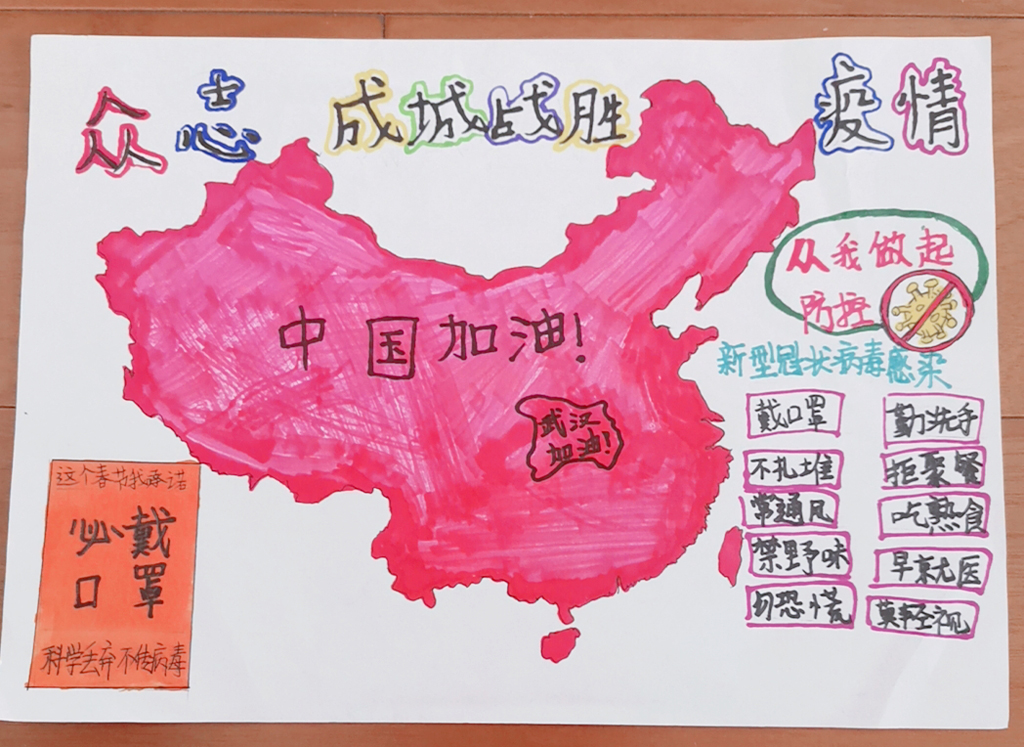 众志成城战胜疫情
从我做起
防控
新型冠状病毒感染
中国加油!
武汉
加油!
戴口罩
勤洗手
不扎堆
拒聚餐
常通风
吃熟食
禁野味
早就医
勿恐慌
莫轻视
这个春节我承诺
必戴
口罩
科学丢弃不传病毒